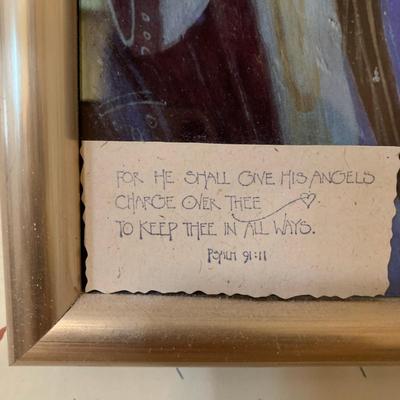 FOR HE SHALL GIVE HIS ANGELS
CHARGE OVER THEE
TO KEEP THEE IN ALL WAYS.
PSALM 91:11